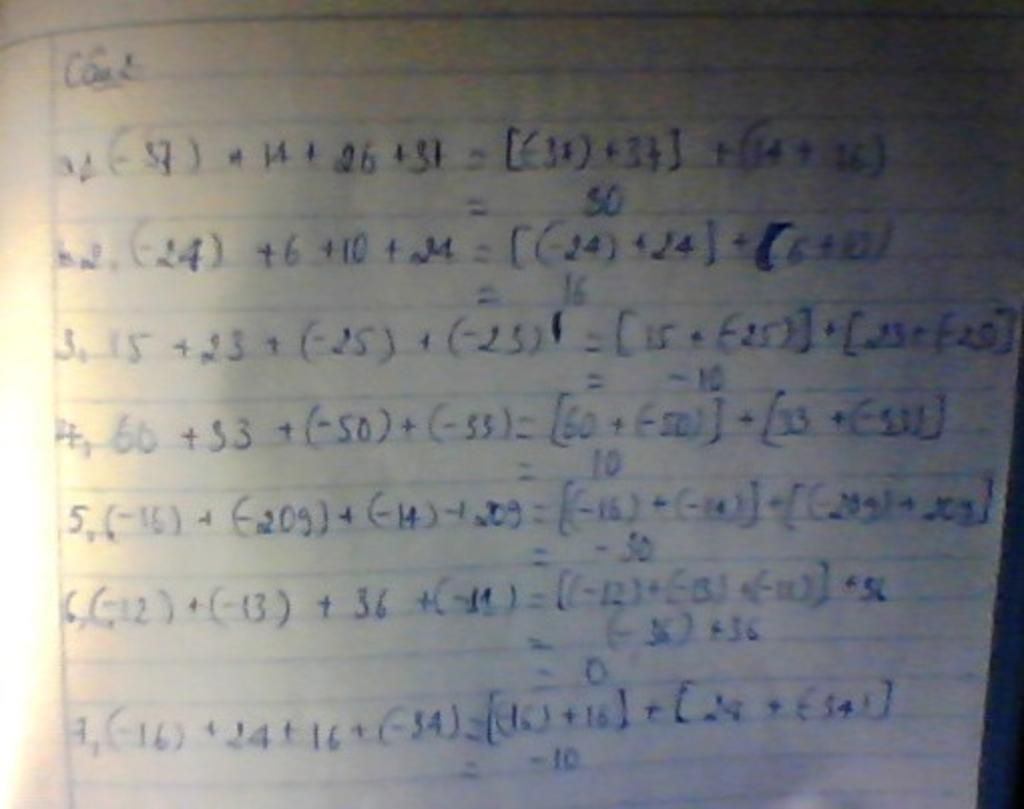 Câu 2
1, (-37) + 14 + 26 + 37 = [(-37) + 37] + (14 + 26)
= 30
2, (-24) + 6 + 10 + 24 = [(-24) + 24] + (6 + 10)
= 16
3, 15 + 23 + (-25) + (-23) = [15 + (-25)] + [23 + (-23)]
= -10
4, 60 + 33 + (-50) + (-33) = [60 + (-50)] + [33 + (-33)]
= 10
5, (-16) + (-209) + (-14) + 209 = [(-16) + (-14)] + [(-209) + 209]
= -30
6, (-12) + (-13) + 36 + (-11) = [(-12) + (-13) + (-11)] + 36
= (-36) + 36
= 0
7, (-16) + 24 + 16 + (-34) = [(-16) + 16] + [24 + (-34)]
= -10